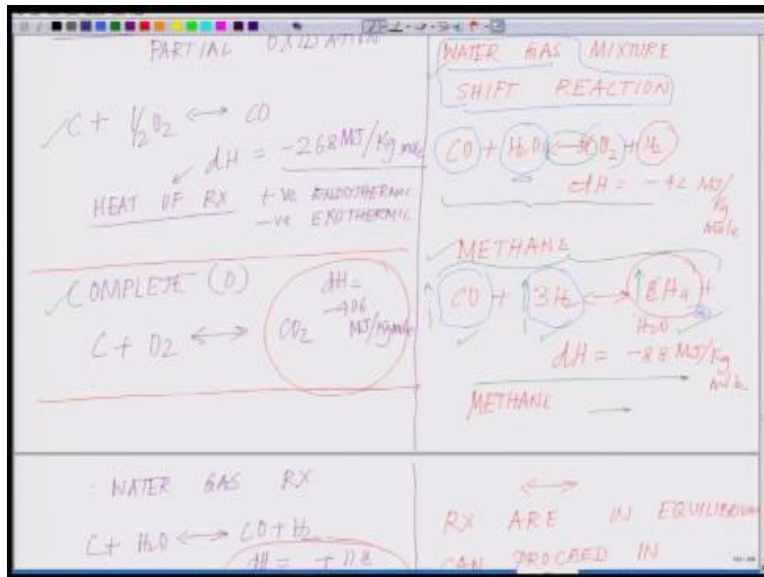 PARTIAL OXIDATION
C + 1/2 O2 <-> CO
dH = -268 MJ/Kg mole
HEAT OF RX +ve ENDOTHERMIC
-ve EXOTHERMIC
COMPLETE (O)
C + O2 <-> CO2
dH =
-406
MJ/Kgmole
WATER GAS RX
C + H2O <-> CO + H2
dH = +118
WATER GAS MIXTURE
SHIFT REACTION
CO + H2O <-> CO2 + H2
dH = -42 MJ/
Kg
mole
METHANE
CO + 3H2 <-> CH4 +
H2O
dH = -88 MJ/Kg
mole
METHANE →
<->
RX ARE IN EQUILIBRIUM
CAN PROCEED IN